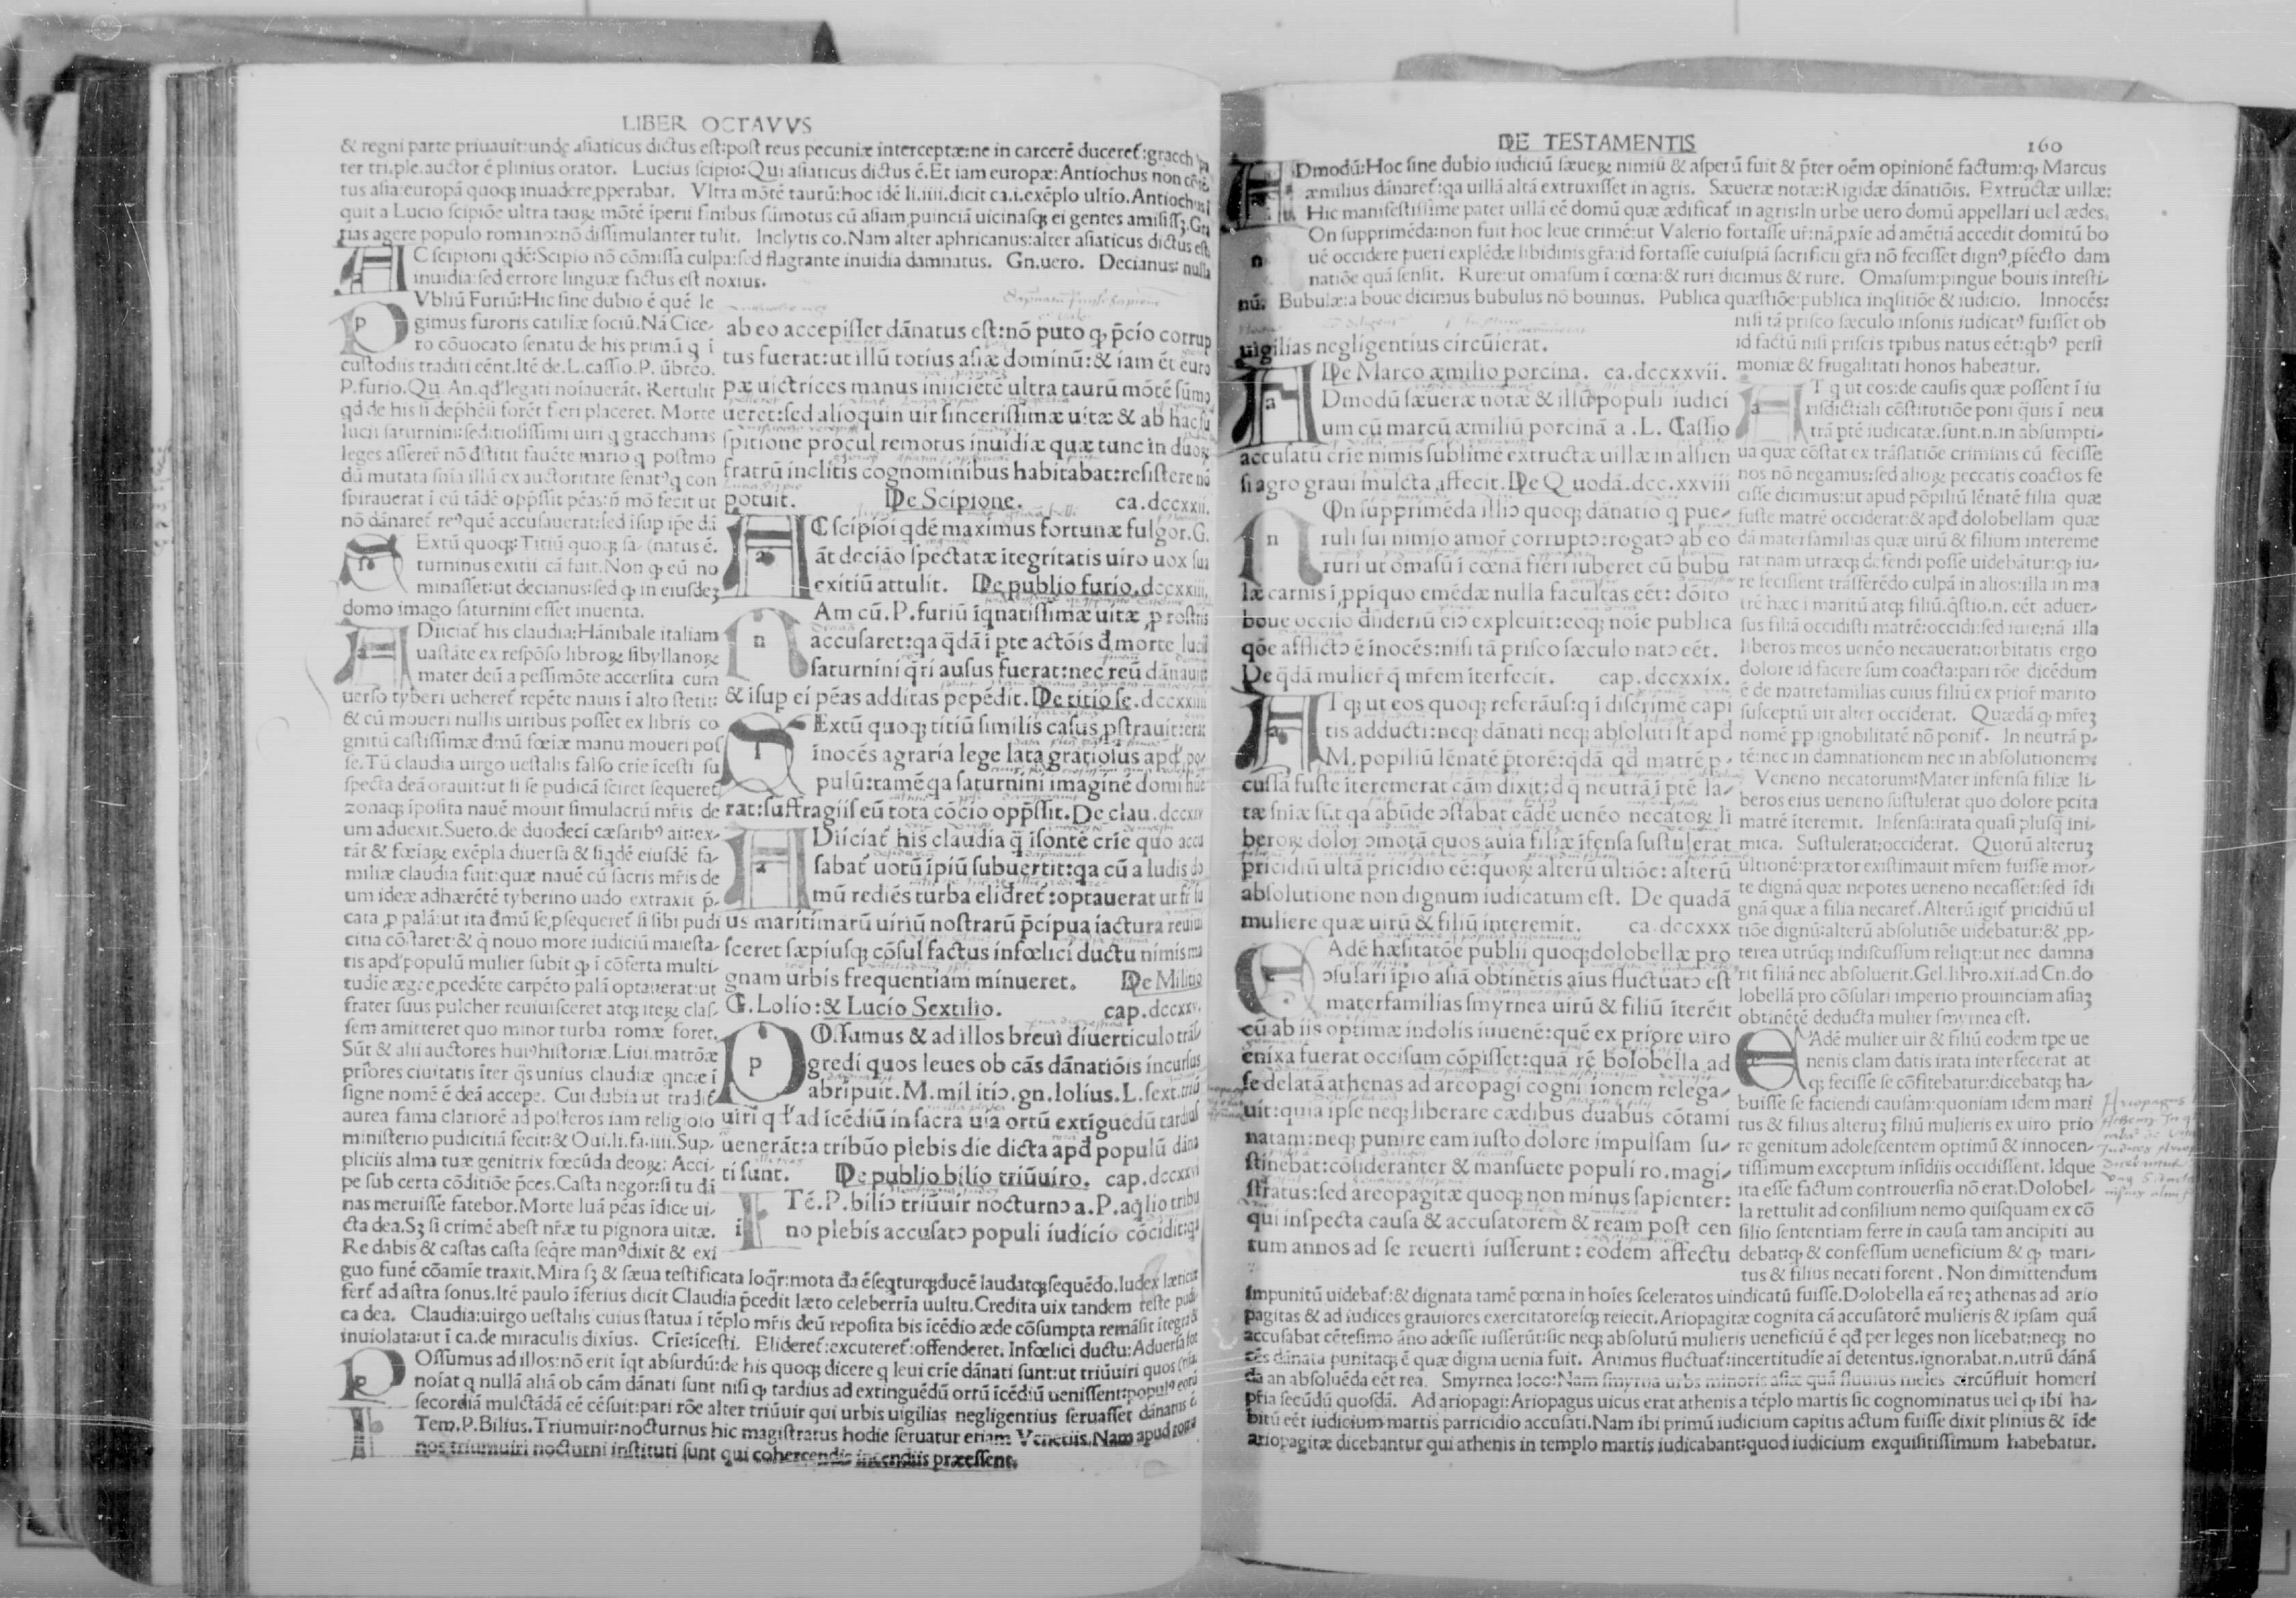 LIBER OCTAVVS
& regni parte priuauit:unde asiaticus dictus est:post reus pecuniæ interceptæ:ne in carcerē duceret᷑:gracch
ter tri.ple.auctor ē plinius orator. Lucius scipio:Qui asiaticus dictus ē.Et iam europæ:Antiochus non
tus asia:europā quoqꝫ inuadere ꝓperabat. Vltra mōtē taurū:hoc idē li.iiii.dicit ca.i.exēplo ultīo.Antiochus
quit a Lucio scipiōe ultra tauꝝ mōtē īperii finibus sūmotus cū asiam ꝓuinciā uicinasqꝫ ei gentes amisissꝫ.Gra
tias agere populo romano:nō dissimulanter tulit. Inclytis co.Nam alter aphricanus:alter asiaticus dictus est
AC scipioni qdē:Scipio nō cōmissa culpa:sed flagrante inuidia damnatus. Gn.uero. Decianus: nulla
inuidia:sed errore linguæ factus est noxius.
PVbliū Furiū:Hic sine dubio ē quē le
gimus furoris catiliæ sociū.Nā Cice-
ro cōuocato senatu de his primū q ī
custodiis traditi eēnt.Itē de.L.cassio.P. ūbrēo.
P.furio.Qu.An.qd' legati noīauerāt. Rettulit
qd de his si dephēsi forēt fieri placeret. Morte
lucii saturnini:seditiosissimi uiri q gracchanas
leges afferēr nō dstitit fauēte mario q postmo
dū mutata snīa illū ex auctoritate senatꝰq con
spirauerat ī eū tādē opp̄ssit pēas:ñ mō fecit ut
nō dānaret᷑ reꝰquē accusauerat:sed isup ipe dā
SExtū quoqꝫ:Titiū quoqꝫ sa-(natus ē.
turninus exitii cā fuit.Non qꝫ eū no
minasset:ut decianus:sed qꝫ in eiusdeꝫ
domo imago saturnini esset inuenta.
ADiiciat᷑ his claudia:Hānibale italiam
uastāte ex respōso libroꝝ sibyllanoꝝ
mater deū a pessimōte accersita cum
uerso tyberi ueheret᷑ repēte nauis ī alto stetit:
& cū moueri nullis uiribus posset ex libris co
gnitū castissimæ dmū fœiæ manu moueri pos
se.Tū claudia uirgo uestalis falso crīe īcesti su
specta deā orauit:ut si se pudicā sciret sequeret᷑
zonaqꝫ īposita nauē mouit simulacrū mr̄is de
um aduexit.Sueto.de duodecī cæsaribꝰ ait:ex-
tāt & fœiaꝝ exēpla diuersa & siqdē eiusdē fa-
miliæ claudia fuit:quæ nauē cū sacris mr̄is de
um ideæ adhærētē tyberino uado extraxit p̄-
cata ꝓ palā:ut ita dmū se ꝓsequeret᷑ si sibi pudi
citia cōstaret:& q̄ nouo more iudiciū maiesta-
tis apd'populū mulier subit qꝫ ī cōferta multi-
tudie ægre ꝓcedēte carpēto palā optauerat:ut
frater suus pulcher reuiuisceret atqꝫ iteꝝ clas-
sem amitteret quo minor turba romæ foret.
Sūt & alii auctores huiꝰhistoriæ.Liui.matrōæ
priores ciuitatis īter q̄s unius claudiæ qncæ ī
signe nomē ē deā accepe. Cui dubia ut tradit᷑
aurea fama clariorē ad posteros iam religioso
ministerio pudicitiā fecit:& Oui.li.fa.iiii.Sup-
pliciis alma tuæ genitrix fœcūda deoꝝ: Acci-
pe sub certa cōditiōe p̄ces.Casta negor:si tu dā
nas meruisse fatebor.Morte luā pēas īdice ui-
cta dea.Sꝫ si crimē abest nr̄æ tu pignora uitæ.
Re dabis & castas casta seq̄re manꝰdixit & exi
guo funē cōamīe traxit.Mira sꝫ & sæua testificata loq̄r:mota đa ē seqturqꝫducē laudatqꝫsequēdo.Iudex læticiæ
fert᷑ ad astra sonus.Itē paulo īferius dicit Claudia p̄cedit læto celeberrīa uultu.Credita uix tandem teste pudi
ca dea. Claudia:uirgo uestalis cuius statua ī tēplo mr̄is deū reposita bis īcēdio æde cōsumpta remāsit ītegra &
inuiolata:ut ī ca.de miraculis dixius. Crīe:īcesti. Elideret᷑:excuteret᷑:offenderet. Infœlici ductu:Aduersa for
POssumus ad illos:nō erit īqt absurdū:de his quoqꝫ dicere q leui crīe dānati sunt:ut triūuiri quos
noīat q nullā aliā ob cām dānati sunt nisi qꝫ tardius ad extinguēdū ortū īcēdiū uenissent:populꝰ eorū
secordiā mulctādā eē cēsuit:pari rōe alter triūuir qui urbis uigilias negligentius seruasset dānatus ē.
ITem.P.Bilius.Triumuir:nocturnus hic magistratus hodie seruatur etiam Venetiis.Nam apud roma
nos triumuiri nocturni instituti sunt qui cohercendis incendiis præessent.
ab eo accepisset dānatus est:nō puto qꝫ p̄cīo corrup
tus fuerat:ut illū totius asiæ dominū:& iam ēt euro
pæ uictrices manus iniiciētē ultra taurū mōtē sūmo
ueret:sed alioquin uir sincerissimæ uitæ & ab hac su
spitione procul remotus inuidiæ quæ tunc in duoꝝ
fratrū inclitis cognominibus habitabat:resistere nō
potuit. De Scipione. ca.dccxxii.
AC scipiōi qdē maximus fortunæ fulgor.G.
āt deciāo spectatæ ītegritatis uiro uox sua
exitiū attulit. De publio furio.dccxxiii.
NAm cū.P.furiū īqnatissimæ uitæ ꝓ rostris
accusaret:qa q̄dā ī pte actōis đ morte lucii
saturnini q̄ri ausus fuerat:nec reū dānauit:
& isup ei pēas additas pepēdit. De titio se.dccxxiiii
SExtū quoqꝫ titiū similis casus ꝓstrauit:erat
īnocēs agraria lege lata gratiosus apd' po-
pulū:tamē qa saturnini imaginē domi hue
rat:suffragiis eū tota cōcio opp̄ssit.De clau.dccxxv
ADiiciat᷑ his claudia q̄ īsonte crīe quo accu
sabat᷑ uotū īpiū subuertit:qa cū a ludis do
mū rediēs turba elidret᷑:optauerat ut fr̄ su
us maritimarū uiriū nostrarū p̄cipua iactura reuiui
sceret sæpiusqꝫ cōsul factus infœlici ductu nimis ma
gnam urbis frequentiam minueret. De Militio
G.Lolio:& Lucio Sextilio. cap.dccxxv.
POssumus & ad illos breui diuerticulo trāſ
gredi quos leues ob cās dānatiōis incursus
abripuit.M.militiɔ.gn.lolius.L.sext.triū
uiri q d' ad icēdiū in sacra uia ortū extiguēdū tardius
uenerāt:a tribūo plebis die dicta apđ populū dāna
ti sunt. De publio bilio triūuiro. cap.dccxxvi
ITē.P.biliɔ triūuir nocturnɔ a.P.aq̄lio tribu
no plebis accusatɔ populi iudicio cōcidit:qa
DE TESTAMENTIS 160
ADmodū:Hoc sine dubio iudiciū sæueꝝ nimiū & asperū fuit & p̄ter oēm opinionē factum:qꝫ Marcus
æmilius dānaret᷑:qa uillā altā extruxisset in agris. Sæueræ notæ:Rigidæ dānatiōis. Extructæ uillæ:
Hic manifestissime patet uillā eē domū quæ ædificat᷑ in agris:In urbe uero domū appellari uel ædes.
NOn supprimēda:non fuit hoc leue crimē:ut Valerio fortasse ur̄:nā ꝓxīe ad amētiā accedit domitū bo
uē occidere pueri explēdæ libidinis gr̄a:id fortasse cuiuspiā sacrificii gr̄a nō fecisset dignꝰ ꝓfecto dam
natiōe quā sensit. Rure:ut omasum ī cœna:& ruri dicimus & rure. Omasum:pingue bouis intesti-
nū. Bubulæ:a boue dicimus bubulus nō bouinus. Publica quæstiōe:publica inqsitiōe & iudicio. Innocēs:
uigilias negligentius circūierat.
De Marco æmilio porcina. ca.dccxxvii.
ADmodū sæueræ notæ & illud populi iudici
um cū marcū æmiliū porcinā a .L. Cassio
accusatū crīe nimis sublime extructæ uillæ in alsien
si agro graui mulcta affecit.De Quodā.dcc.xxviii
NOn supprimēda illiɔ quoqꝫ dānatio q pue-
ruli sui nimio amor̄ corruptɔ:rogatɔ ab eo
ruri ut omasū ī cœnā fieri iuberet cū bubu
læ carnis ī ꝓpiquo emēdæ nulla facultas eēt: dōito
boue occiso dsideriū eiɔ expleuit:eoqꝫ noīe publica
qōe afflictɔ ē īnocēs:nisi tā prisco sæculo natɔ eēt.
De q̄dā mulier̄ q̄ mr̄em īterfecit. cap.dccxxix.
AT qꝫ ut eos quoqꝫ referāus:q ī discrimē capi
tis adducti:neqꝫ dānati neqꝫ absoluti st̄ apd
M.popiliū lēnatē p̄torē:q̄dā qd matrē p-
cussā fuste īteremerat cām dixit:d q̄ neutrā ī ptē la-
tæ sniæ sūt qa abūde ɔstabat eādē uenēo necatoꝝ li
beroꝝ dolor̄ ɔmotā quos auia filiæ ifensa sustulerat
pricidiū ultā pricidio eē:quoꝝ alterū ultiōe: alterū
absolutione non dignum iudicatum est. De quadā
muliere quæ uirū & filiū interemit. ca.dccxxx
EAdē hæsitatōe publii quoqꝫ dolobellæ pro
ɔsulari īpio asiā obtinētis aius fluctuatɔ est
materfamilias smyrnea uirū & filiū īterēit
cū ab iis optimæ indolis iuuenē:quē ex priore uiro
enixa fuerat occisum cōpisset:quā rē bolobella ad
se delatā athenas ad areopagi cognitionem relega-
uit:quia ipse neqꝫ liberare cædibus duabus cōtami
natam:neqꝫ punire eam iusto dolore impulsam su-
stinebat:cōsideranter & mansuete populi ro.magi-
stratus:sed areopagitæ quoqꝫ non minus sapienter:
qui inspecta causa & accusatorem & ream post cen
tum annos ad se reuerti iusserunt : eodem affectu
nisi tā prisco sæculo insonis iudicatꝰ fuisset ob
id factū nisi priscis tpibus natus eēt:qbꝰ persi
moniæ & frugalitati honos habeatur.
AT q ut eos:de causis quæ possent ī iu
risdictiali cōstitutiōe poni q̄uis ī neu
trā ptē iudicatæ.sunt.n.in absumpti-
ua quæ cōstat ex trāslatiōe criminis cū fecisse
nos nō negamus:sed alioꝝ peccatis coactos fe
cisse dicimus:ut apud pēpiliū lēnatē filia quæ
fuste matrē occiderat:& apđ dolobellam quæ
dā materfamilias quæ uirū & filium intereme
rat:nam utræqꝫ defendi posse uidebātur:qꝫ iu-
re fecissent trāsferēdo culpā in alios:illa in ma
trē hæc ī maritū atqꝫ filiū.q̄stio.n. eēt aduer-
sus filiā occidisti matrē:occidi:sed iure:nā illa
liberos meos uenēo necauerat:orbitatis ergo
dolore id facere sum coacta:pari rōe dicēdum
ē de matrefamilias cuius filiū ex prior̄ marito
susceptū uir alter occiderat. Quædā qꝫ mr̄eꝫ
nomē ꝓp ignobilitatē nō ponit᷑. In neutrā p-
tē:nec in damnationem nec in absolutionem:
Veneno necatorum:Mater infensa filiæ li-
beros eius ueneno sustulerat quo dolore pcita
matrē īteremit. Infensa:irata quasi plusq̄ ini-
mica. Sustulerat:occiderat. Quorū alteruꝫ
ultionē:prætor existimauit mr̄em fuisse mor-
te dignā quæ nepotes ueneno necasset:sed īdi
gnā quæ a filia necaret᷑.Alterū igit᷑ pricidiū ul
tiōe dignū:alterū absolutiōe uidebatur:& ꝓp-
terea utrūqꝫ indiscussum reliqt:ut nec damna
rit filiā nec absoluerit.Gel.libro.xii.ad Cn.do
lobellā pro cōsulari imperio prouinciam asiaꝫ
obtinētē deducta mulier smyrnea est.
EAdē mulier uir & filiū eodem tpe ue
nenis clam datis irata interfecerat at
qꝫ fecisse se cōfitebatur:dicebatqꝫ ha-
buisse se faciendi causam:quoniam idem mari
tus & filius alteruꝫ filiū mulieris ex uiro prio
re genitum adolescentem optimū & innocen-
tissimum exceptum insidiis occidissent. Idque
ita esse factum controuersia nō erat.Dolobel-
la rettulit ad consilium nemo quisquam ex cō
silio sententiam ferre in causa tam ancipiti au
debat:qꝫ & confessum ueneficium & qꝫ mari-
tus & filius necati forent . Non dimittendum
impunitū uidebat᷑:& dignata tamē pœna in hoīes sceleratos uindicatū fuisse.Dolobella eā reꝫ athenas ad ario
pagitas & ad iudices grauiores exercitatoresqꝫ reiecit.Ariopagitæ cognita cā accusatorē mulieris & ipsam quā
accusabat cētesimo āno adesse iusserūt:sic neqꝫ absolutū mulieris ueneficiū ē qđ per leges non licebat:neqꝫ no
cēs dānata punitaqꝫ ē quæ digna uenia fuit. Animus fluctuat᷑:incertitudīe aī detentus.ignorabat.n.utrū dānā
da an absoluēda eēt rea. Smyrnea loco:Nam smyrna urbs minoris asiæ quā fluuius meles circūfluit homeri
pr̄ia secūdū quosdā. Ad ariopagi:Ariopagus uicus erat athenis a tēplo martis sic cognominatus uel qꝫ ibi ha-
bitū eēt iudicium martis parricidio accusati.Nam ibi primū iudicium capitis actum fuisse dixit plinius & īde
ariopagitæ dicebantur qui athenis in templo martis iudicabant:quod iudicium exquisitissimum habebatur.